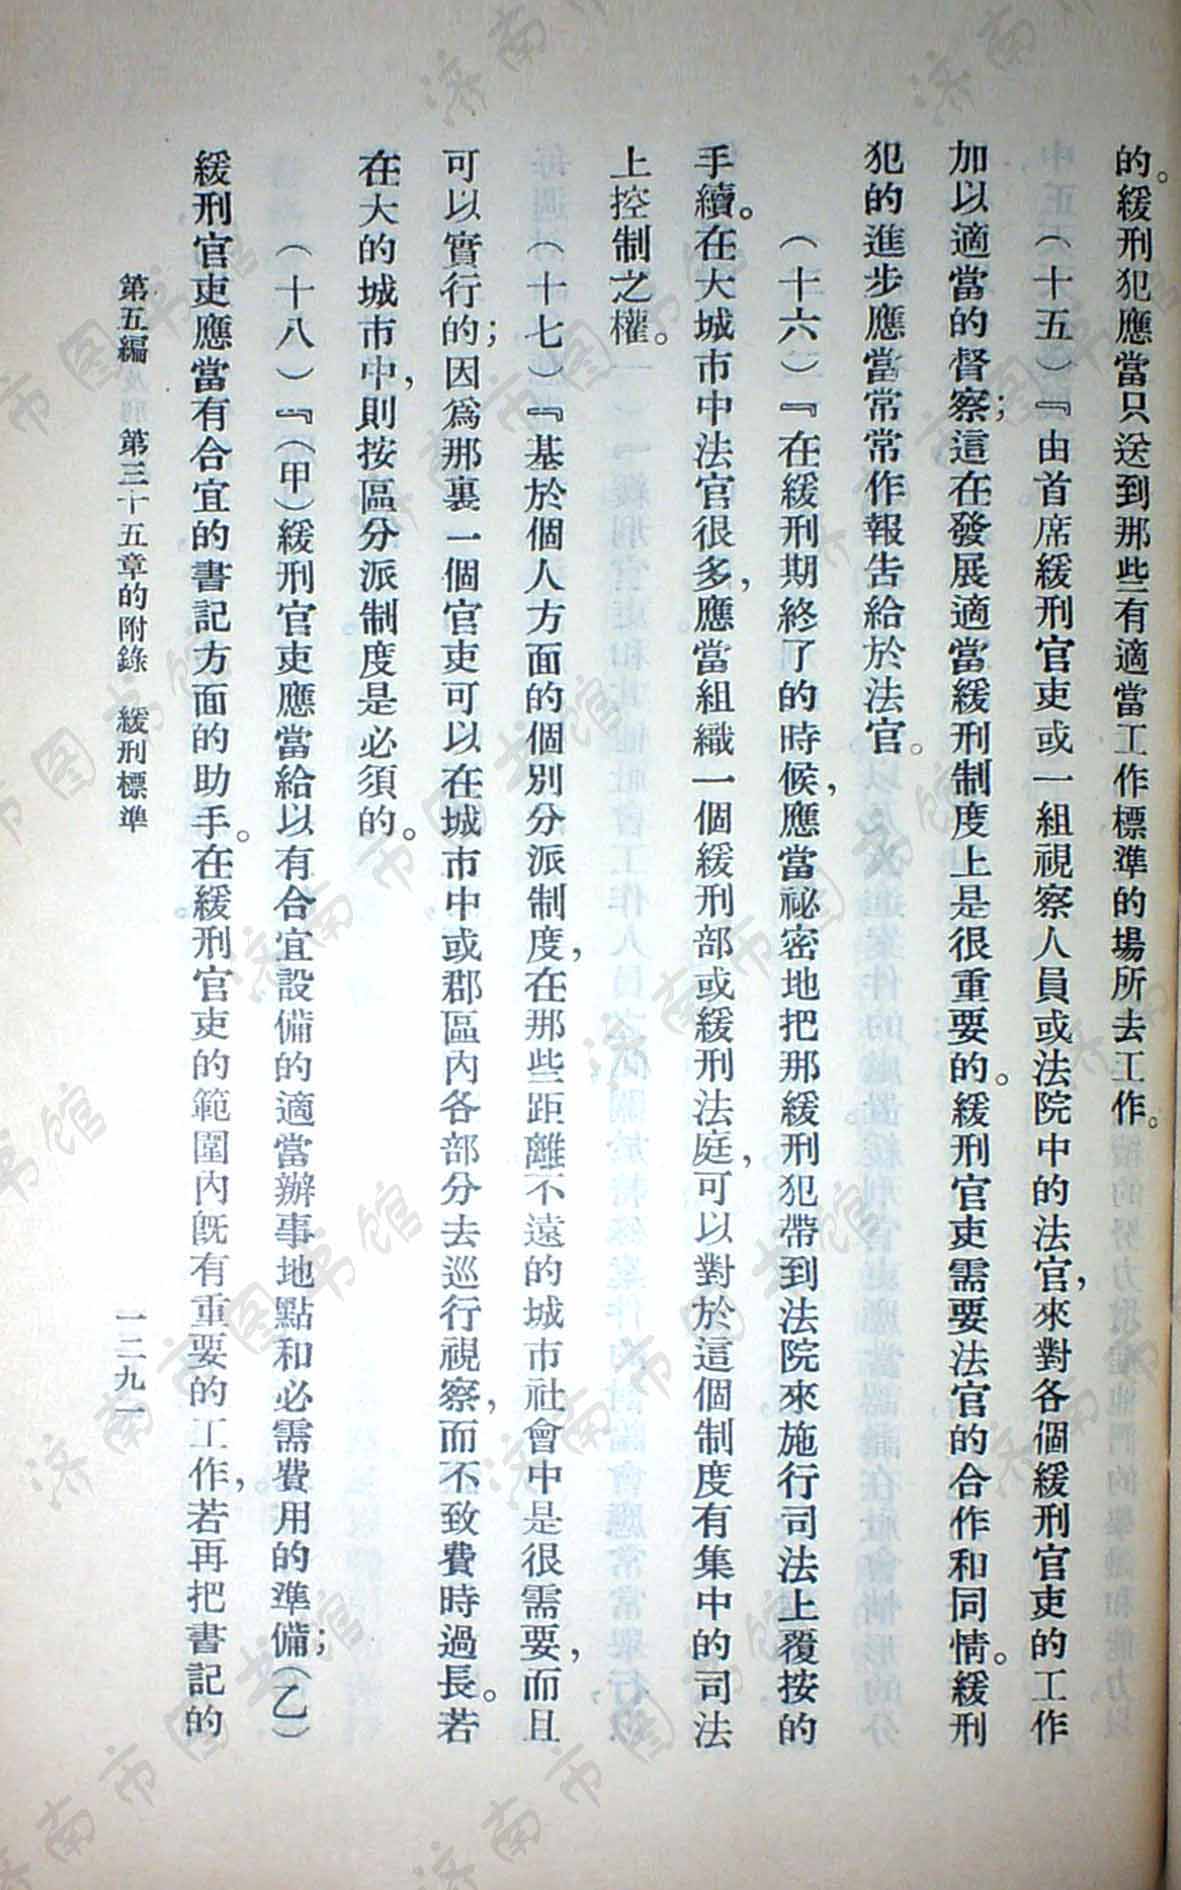 的。緩刑犯應當只送到那些有適當工作標準的場所去工作。
（十五）『由首席緩刑官吏或一組視察人員或法院中的法官，來對各個緩刑官吏的工作
加以適當的督察；這在發展適當緩刑制度上是很重要的。緩刑官吏需要法官的合作和同情。緩刑
犯的進步應當常常作報告給於法官。
（十六）『在緩刑期終了的時候，應當祕密地把那緩刑犯帶到法院來施行司法上覆按的
手續。在大城市中法官很多，應當組織一個緩刑部或緩刑法庭，可以對於這個制度有集中的司法
上控制之權。
（十七）『基於個人方面的個別分派制度，在那些距離不遠的城市社會中是很需要，而且
可以實行的；因爲那裏一個官吏可以在城市中或郡區內各部分去巡行視察，而不致費時過長。若
在大的城市中，則按區分派制度是必須的。
（十八）『（甲）緩刑官吏應當給以有合宜設備的適當辦事地點和必需費用的準備；（乙）
緩刑官吏應當有合宜的書記方面的助手。在緩刑官吏的範圍內既有重要的工作，若再把書記的
第五編 第三十五章的附錄 緩刑標準 一二九一
济南市图书馆